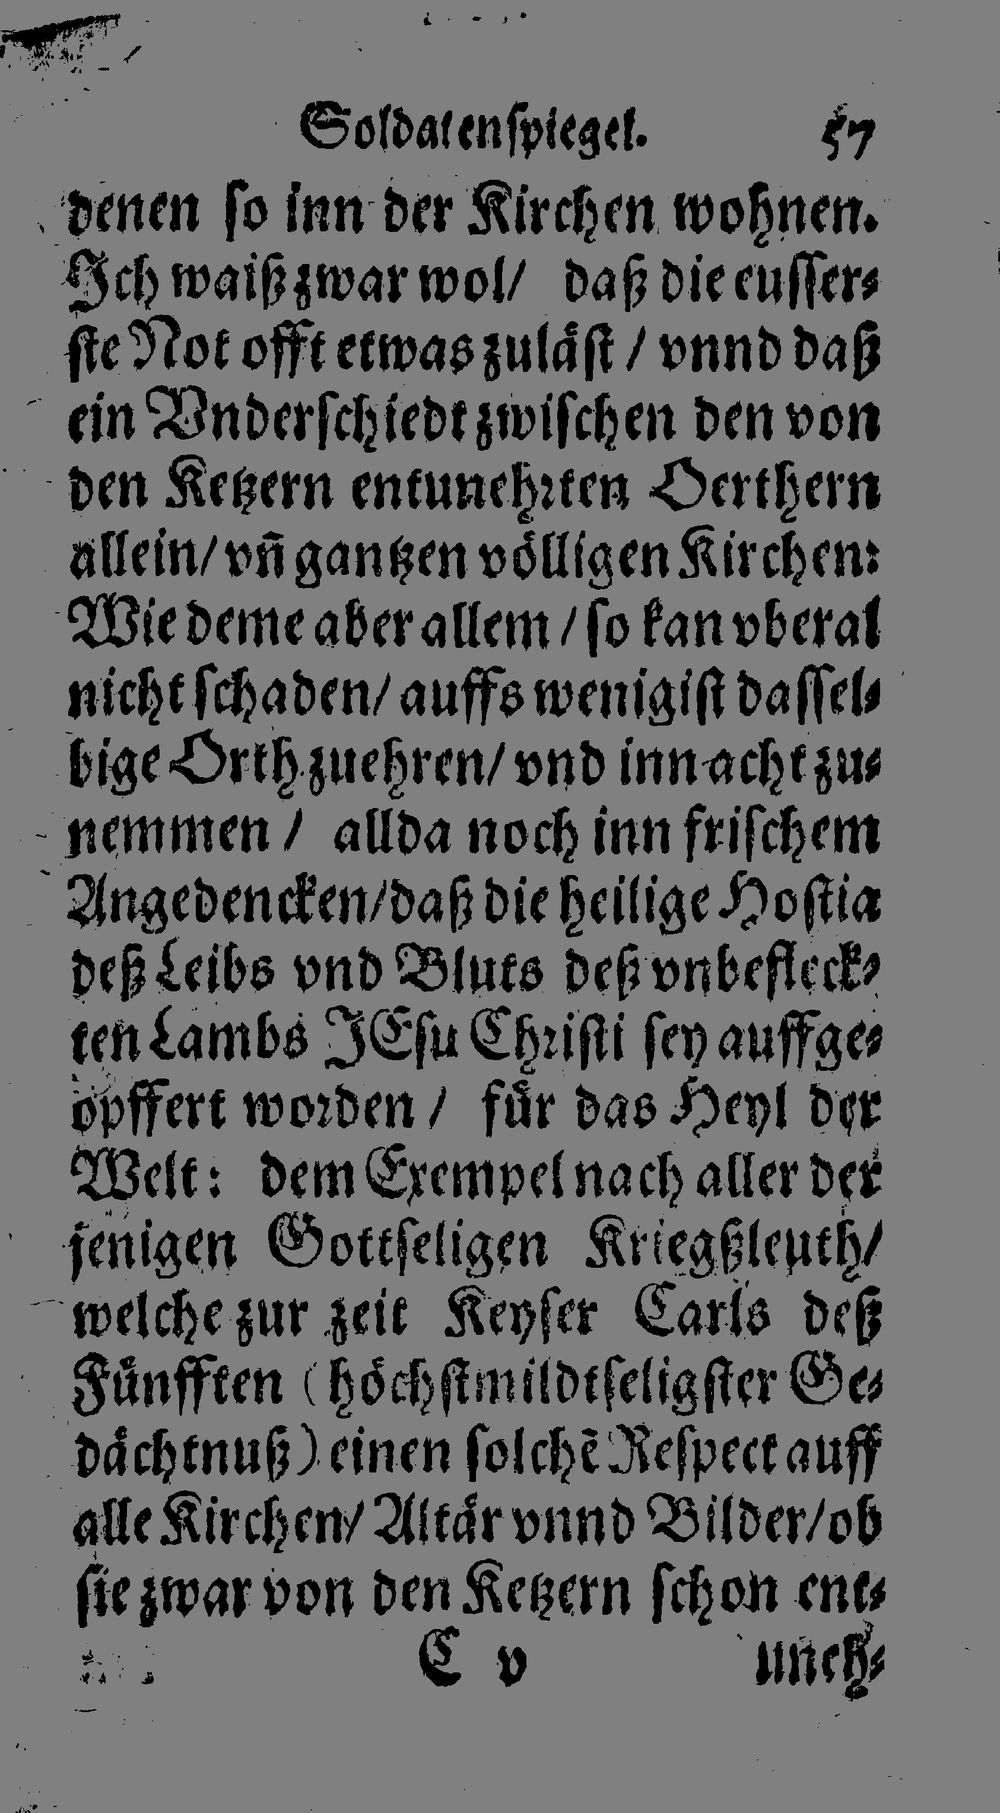 Soldatenspiegel. 57
denen so inn der Kirchen wohnen.
Ich waiß zwar wol/ daß die eusser-
ste Not offt etwas zuläst / vnnd daß
ein Vnderschiedt zwischen den von
den Ketzern entunehrten Oerthern
allein/ vñ gantzen völligen Kirchen:
Wie deme aber allem / so kan vberal
nicht schaden/ auffs wenigist dassel-
bige Orth zuehren/ vnd inn acht zu-
nemmen / allda noch inn frischem
Angedencken/daß die heilige Hostia
deß Leibs vnd Bluts deß vnbefleck-
ten Lambs JEsu Christi sey auffge-
opffert worden / für das Heyl der
Welt: dem Exempel nach aller der
jenigen Gottseligen Kriegßleuth/
welche zur zeit Keyser Carls deß
Fünfften (höchstmildtseligster Ge-
dächtnuß) einen solchẽ Respect auff
alle Kirchen/ Altär vnnd Bilder/ob
sie zwar von den Ketzern schon ent-
C v uneh-